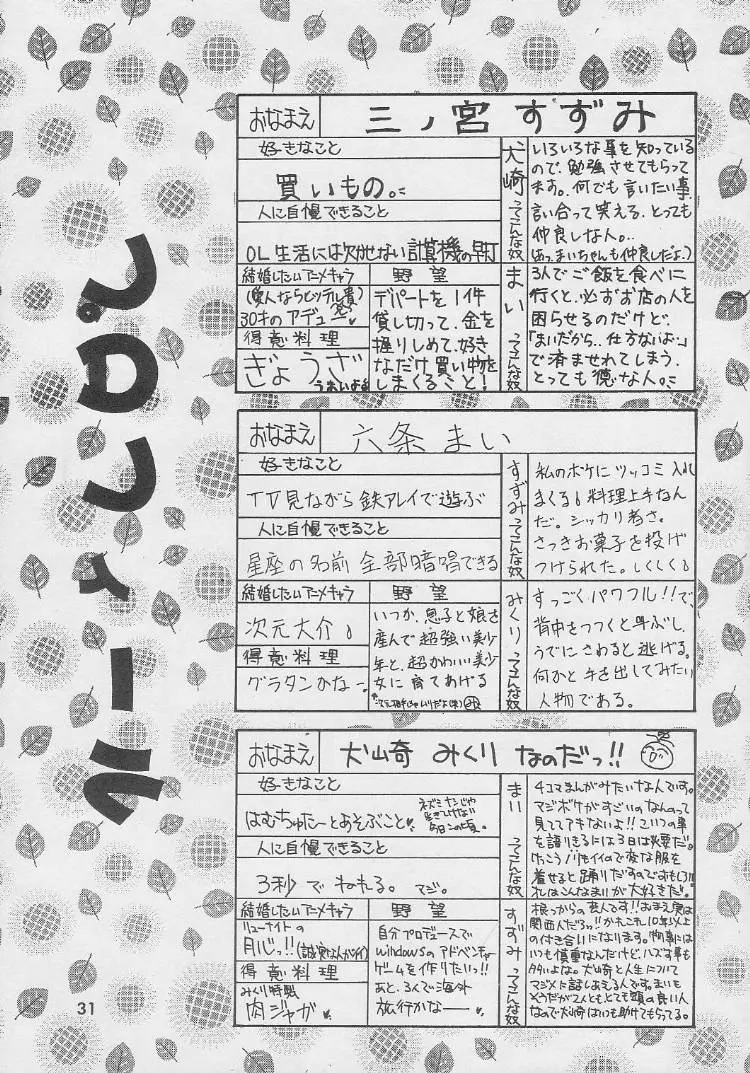 プロフィール
おなまえ
三ノ宮 すずみ
好きなこと
買いもの。
人に自慢できること
OL生活には欠かせない計算機の早打
結婚したいアニメキャラ
30才のアデュー
得意料理
ぎょうざ
うまいよ
野望
デパートを1件
貸し切って、金を
握りしめて、好き
なだけ買い物を
しまくること!
犬崎ってこんな奴
いろいろな事を知っている
ので、勉強させてもらって
ます。何でも言いたい事
言い合って笑える、とっても
仲良しな人。
(あっ、まいちゃんも仲良しだよ。)
まいってこんな奴
3人でご飯を食べに
行くと、必ずお店の人を
困らせるのだけど、
「まいだから、仕方ないよ…」
で済ませれてしまう、
とっても徳な人。
おなまえ
六条まい
好きなこと
TV見ながら鉄アレイで遊ぶ
人に自慢できること
星座の名前 全部暗唱できる
結婚したいアニメキャラ
次元大介
得意料理
グラタンかなー
野望
いつか、息子と娘を
産んで超強い美少
年と、超かわい美少
女に育てあげる
すずみってこんな奴
私のボケにツッコミ入れ
まくる。料理上手なん
だ。シッカリ者さ。
さっきお菓子を投げ
つけられた。しくしく。
みくりってこんな奴
すっごくパワフル!!で、
背中をつつくと呼ぶし、
うでにさわると逃げる。
何かと手を出してみたい
人物である。
おなまえ
犬崎 みくり なのだっ!!
好きなこと
はむちゅたーとあそぶこと
人に自慢できること
3秒でねれる。マジ。
結婚したいアニメキャラ
リューナイトの
月心っ!!
得意料理
みくり特製
肉ジャガ
野望
自分プロデュースで
windowsのアドベンチャー
ゲームを作りたいっ!!
あと、3人で海外
旅行かなー
まいってこんな奴
4コマまんがみたいな人です。
マジボケがすごいのなんのって
見ててアキないよ!!こいつの事
を語りきるには3日は必要だ。
けっこうノリもイイので変な服を
着せると踊りだすのです
すずみってこんな奴
根っからの芸人です!!おまえ実は
関西人だろっ!!かれこれ10年以上
の付き合いになります。物事には
いつも慎重なんだけど、ハズす事も
多いよな。犬崎と人生について
マジメに話しあえる人です。まいも
そうだが2人ともとても頭の良い人
なので犬崎はいつも助けてもらってる。
31